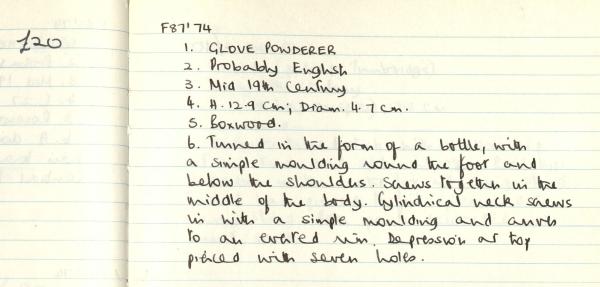 £20
F87'74
1. GLOVE POWDERER
2. Probably English
3. Mid 19th Century
4. H. 12.9 cm; Diam. 4.7 cm.
5. Boxwood.
6. Turned in the form of a bottle, with
a simple moulding round the foot and
below the shoulders. Screws together in the
middle of the body. Cylindrical neck screws
in with a simple moulding and curves
to an everted rim. Depression at top
pierced with seven holes.